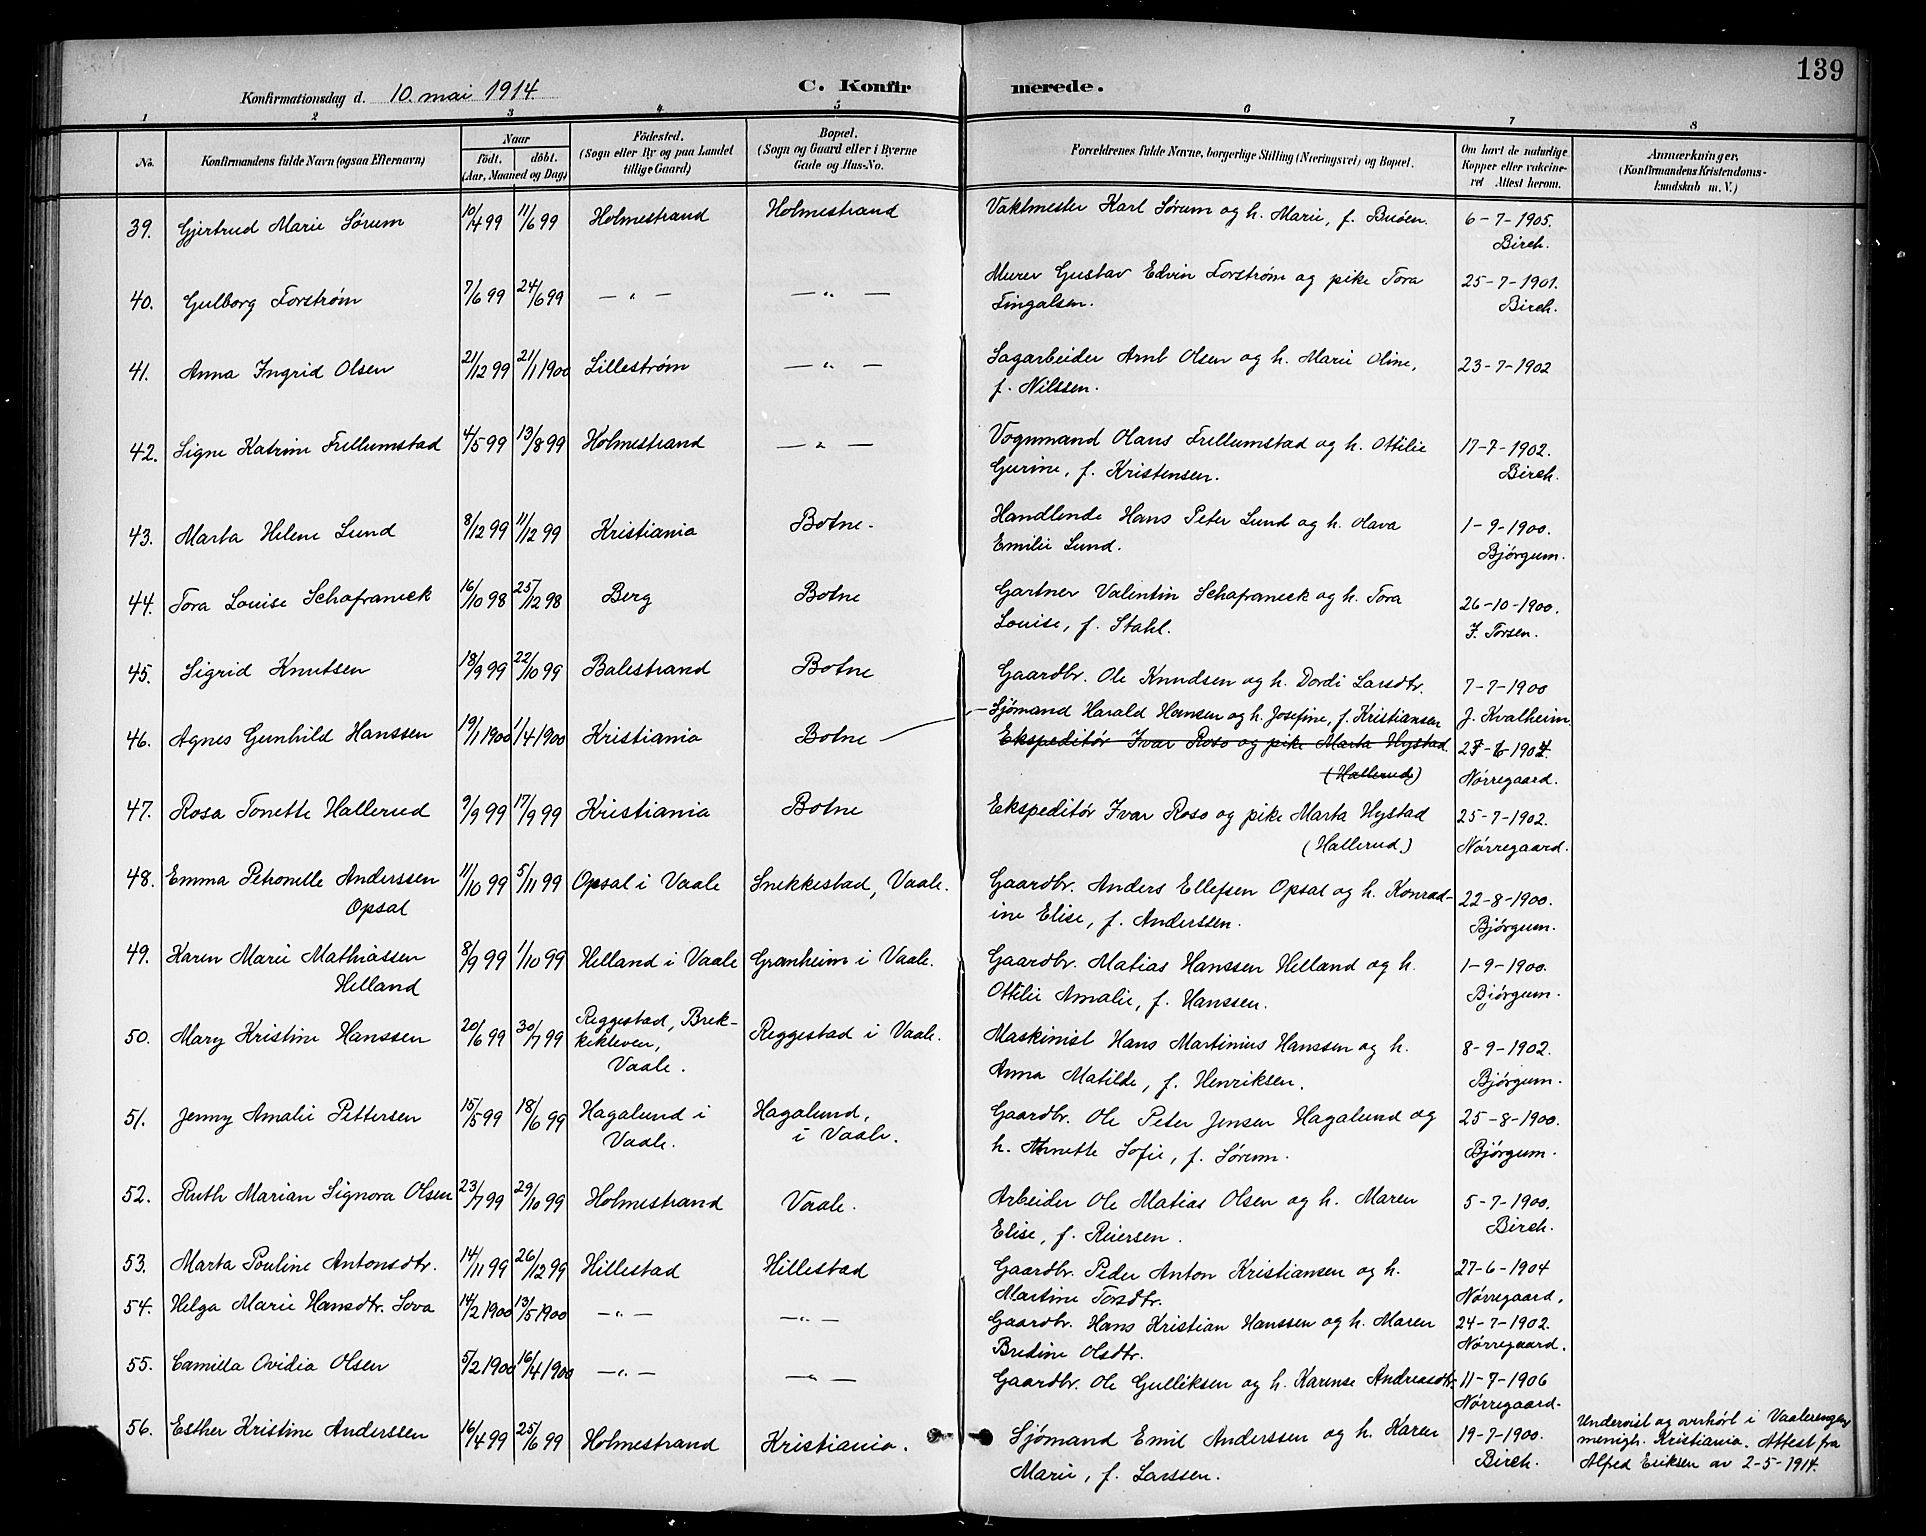 139
Konfirmationsdag d. 10. mai 1914.
C. Konfirmerede.
1 2 3 4 5 6 7 8
No.
Konfirmandens fulde Navn (ogsaa Efternavn)
Naar
født. døbt.
(Aar, Maaned og Dag)
Fødested.
(Sogn eller By og paa Landet
tillige Gaard)
Bopæl.
(Sogn og Gaard eller i Byerne
Gade og Hus-No.
Forældrenes fulde Navne, borgerlige Stilling (Næringsvei) og Bopæl.
Om havt de naturlige
Kopper eller vakcine-
ret Attest herom.
Anmærkninger.
(Konfirmandens Kristendoms-
kundskab m. V.)
39. Gjertrud Marie Sørum 10/4 99 11/6 99 Holmestrand Holmestrand Vaktmester Karl Sørum og h. Marie, f. Buøen. 6-7-1905.
Birch.
40. Gulborg Forstrøm 7/6 99 24/6 99 — " — — " — Murer Gustav Edvin Forstrøm og pike Tora 25-7-1901.
Fingalsen. Birch.
41. Anna Ingrid Olsen 21/12 99 21/1 1900 Lillestrøm — " — Sagarbeider Arnt Olsen og h. Marie Oline, 23-7-1902
f. Nilssen.
42. Signe Katrine Frellumstad 4/5 99 13/8 99 Holmestrand — " — Vognmand Olaus Frellumstad og h. Ottilie 17-7-1902.
Gurine, f. Kristensen. Birch.
43. Marta Helene Lund 8/12 99 11/12 99 Kristiania Botne. Handlende Hans Peter Lund og h. Olava 1-9-1900.
Emilie Lund. Bjørgum.
44. Tora Louise Schafraneck 16/10 98 25/12 98 Berg Botne Gartner Valentin Schafraneck og h. Tora 26-10-1900.
Louise, f. Stahl. J. Torsen.
45. Sigrid Knutsen 18/9 99 22/10 99 Balestrand Botne Gaardbr. Ole Knudsen og h. Dordi Larsdtr. 7-7-1900
J. Kvalheim.
46. Agnes Gunhild Hanssen 19/1 1900 1/4 1900 Kristiania Botne — Sjømand Harald Hansen og h. Josefine, f. Kristiansen
Ekspeditør Ivar Roso og pike Marta Hystad
(Hallerud) Nørregaard.
47. Rosa Tonette Hallerud 9/9 99 17/9 99 Kristiania Botne Ekspeditør Ivar Roso og pike Marta Hystad 25-7-1902.
(Hallerud) Nørregaard.
48. Emma Petronelle Anderssen 11/10 99 5/11 99 Opsal i Vaale Snekkestad, Vaale. Gaardbr. Anders Ellefsen Opsal og h. Konrad- 22-8-1900.
Opsal ine Elise, f. Anderssen. Bjørgum.
49. Karen Marie Mathiassen 8/9 99 1/10 99 Helland i Vaale Granheim i Vaale. Gaardbr. Matias Hanssen Helland og h. 1-9-1900.
Helland Ottilie Amalie, f. Hanssen. Bjørgum.
50. Mary Kristine Hanssen 20/6 99 30/7 99 Reggestad, Brek-
kekleven,
Vaale. Reggestad i Vaale. Maskinist Hans Martinius Hanssen og h. 8-9-1902.
Anna Matilde, f. Henriksen. Bjørgum.
51. Jenny Amalie Pettersen 15/5 99 18/6 99 Hagalund i
Vaale. Hagalund,
i Vaale. Gaardbr. Ole Peter Jensen Hagalund og 25-8-1900.
h. Annette Sofie, f. Sørum. Bjørgum.
52. Ruth Marian Signora Olsen 23/7 99 29/10 99 Holmestrand Vaale. Arbeider Ole Matias Olsen og h. Maren 5-7-1900.
Elise, f. Reiersen. Birch.
53. Marta Pouline Antonsdtr. 14/11 99 26/12 99 Hillestad Hillestad Gaardbr. Peder Anton Kristiansen og h. 27-6-1904
Martine Torsdtr. Nørregaard.
54. Helga Marie Hansdtr. Sova 14/2 1900 13/5 1900 — " — — " — Gaardbr. Hans Kristian Hanssen og h. Maren 24-7-1902.
Bredine Olsdtr. Nørregaard.
55. Camilla Ovidia Olsen 5/2 1900 16/4 1900 — " — — " — Gaardbr. Ole Gulliksen og h. Karense Andreasdtr. 11-7-1906
Nørregaard.
56. Esther Kristine Anderssen 16/4 99 25/6 99 Holmestrand Kristiania. Sjømand Emil Anderssen og h. Karen 19-7-1900.
Marie, f. Larssen. Birch.
Undervist og overhørt i Vaalerengen
menigh. Kristiania. Attest fra
Alfred Eriksen av 2-5-1914.